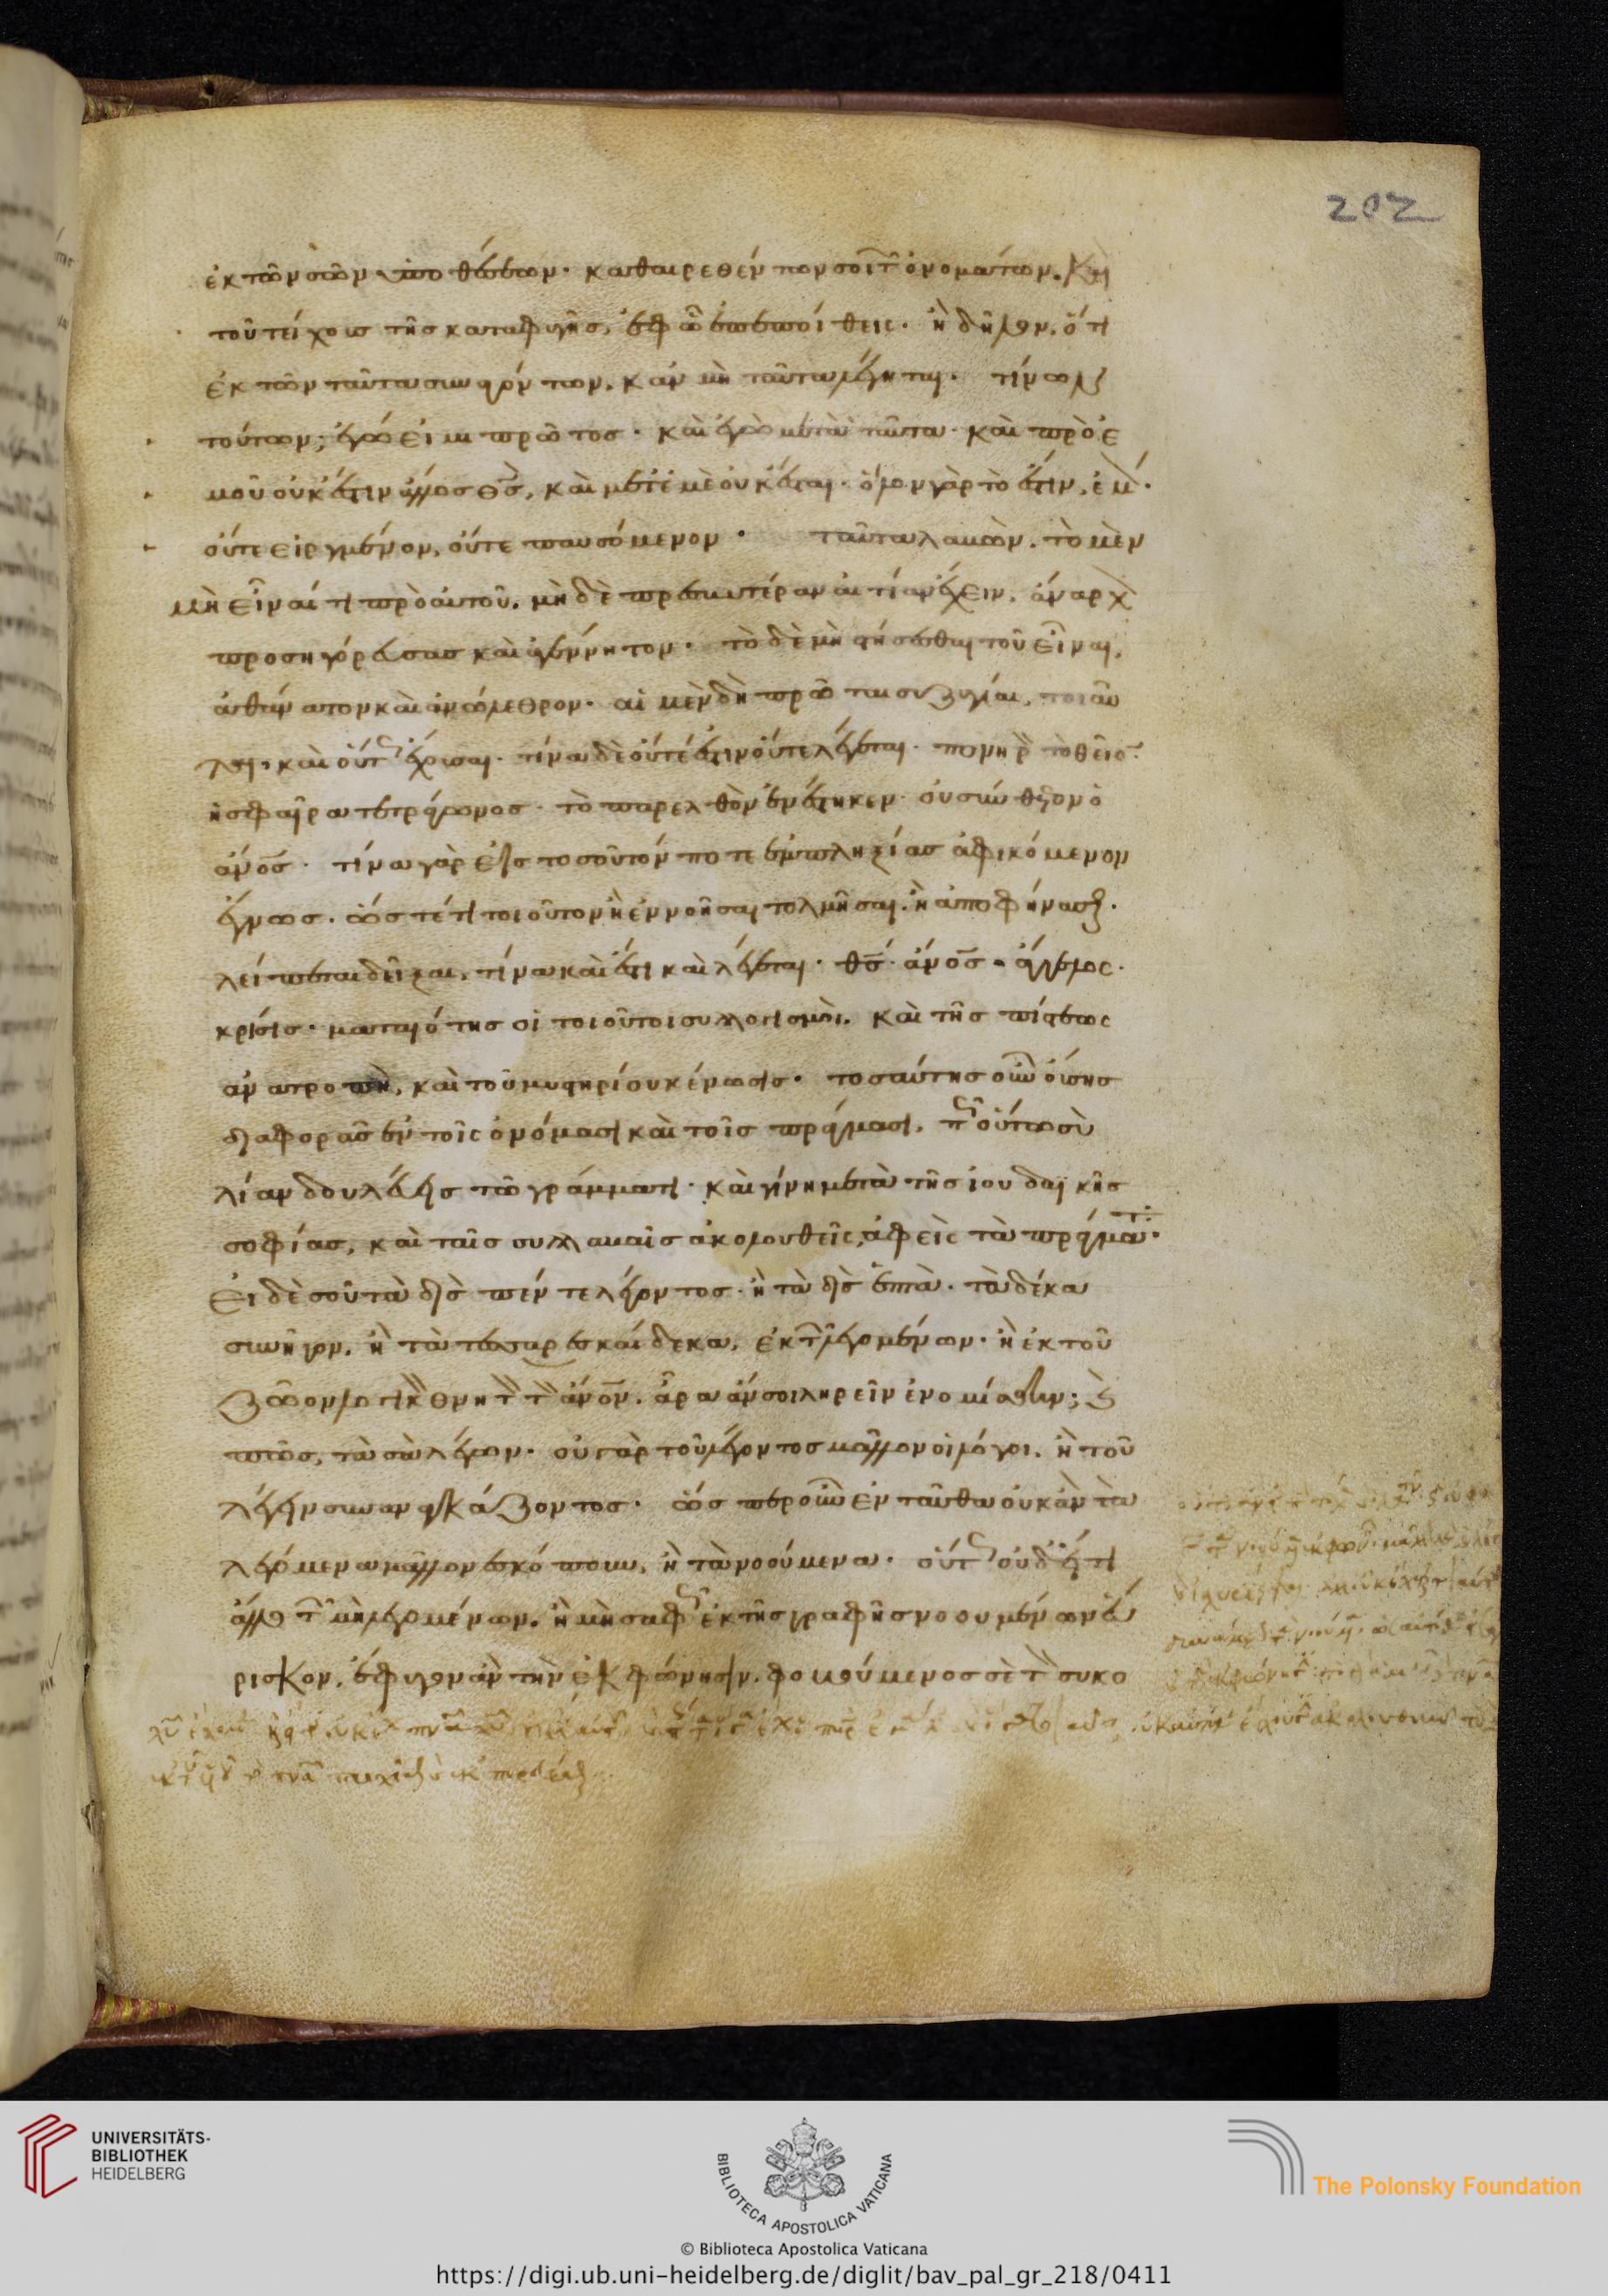 ἐκ τῶν σῶν ὑποθέσεων· καθαιρεθέντων σοι τῶν ὀνομάτων. καὶ
τοῦ τείχους τῆς καταφυγῆς, ἐφ ᾧ ἐπεποίθεις. ἢ δῆλον, ὅτι
ἐκ τῶν ταῦτα συναγόντων, κἂν μὴ ταῦτα λέγηται. τίνα
τούτων; ἐγώ εἰμι πρῶτος· καὶ ἐγὼ μετὰ ταῦτα· καὶ πρὸ ἐ
μοῦ οὐκ ἔστιν ἄλλος θς, καὶ μετ ἐμὲ οὐκ ἔσται· ὅλον γὰρ τὸ ἔστιν, ἐμόν.
οὔτε εἰργμένον, οὔτε παυσόμενον. ταῦτα λαβὼν, τὸ μὲν
μὴ εἶναί τι πρὸ αὐτοῦ, μὴ δὲ πρεσβυτέραν αἰτίαν ἔχειν, ἄναρχον
προσηγόρευσας καὶ ἀγέννητον· τὸ δὲ μὴ στήσεσθαι τοῦ εἶναι,
ἀθάνατον καὶ ἀνώλεθρον· αἱ μὲν δὴ πρῶται συζυγίαι, τοιαῦ
ται, καὶ οὕτως ἔχουσαι. τίνα δὲ οὔτέ ἐστιν οὔτε λέγεται· πονηρὸν τὸ θεῖον·
ἡ σφαῖρα τετράγωνος· τὸ παρελθὸν ἐνέστηκεν· οὐ σύνθετον ὁ
ἄνος· τίνα γὰρ εἰς τοσοῦτόν ποτε ἐμπληξίας ἀφικόμενον
ἔγνως, ὥστέ τι τοιοῦτον ἢ ἐννοῆσαι τολμῆσαι, ἢ ἀποφήνασθαι.
λείπεται δεῖξαι, τίνα καὶ ἔστι καὶ λέγεται· θς· ἄνος· ἄγγελος·
κρίσις· ματαιότης οἱ τοιοῦτοι συλλογισμοὶ, καὶ τῆς πίστεως
ἀνατροπὴ, καὶ τοῦ μυστηρίου κένωσις. τοσαύτης οὖν οὔσης
διαφορᾶς ἐν τοῖς ὀνόμασι καὶ τοῖς πράγμασι, οὕτω σὺ
λίαν δουλεύεις τῷ γράμματι· καὶ γίνῃ μετὰ τῆς ἰουδαϊκῆς
σοφίας, καὶ ταῖς συλλαβαῖς ἀκολουθεῖς, ἀφεὶς τὰ πράγματα.
Εἰ δὲ σοῦ τὰ δὶς πέντε λέγοντος· ἢ τὰ δὶς ἑπτὰ· τὰ δέκα
συνῆγον, ἢ τὰ τεσσαρεσκαίδεκα, ἐκ τῶν λεγομένων· ἢ ἐκ τοῦ
ζῷον λογικὸν θνητὸν τὸν ἄνον, ἆρα ἄν σοι ληρεῖν ἐνομίσθην; καὶ
πῶς, τὰ σὰ λέγων· οὐ γὰρ τοῦ λέγοντος μᾶλλον οἱ λόγοι, ἢ τοῦ
λέγειν συναναγκάζοντος· ὥσπερ οὖν ἐνταῦθα οὐκ ἂν τὰ
λεγόμενα μᾶλλον ἐσκόπουν, ἢ τὰ νοούμενα· οὕτως οὐδ εἴ τι
ἄλλο τῶν μὴ λεγομένων, ἢ μὴ σαφῶς ἐκ τῆς γραφῆς νοουμένων εὕ
ρισκον, ἔφυγον ἂν τὴν ἐκφώνησιν, φοβούμενος σὲ τὸν συκο
202
UNIVERSITÄTS-
BIBLIOTHEK
HEIDELBERG
BIBLIOTECA APOSTOLICA VATICANA
The Polonsky Foundation
© Biblioteca Apostolica Vaticana
https://digi.ub.uni-heidelberg.de/diglit/bav_pal_gr_218/0411